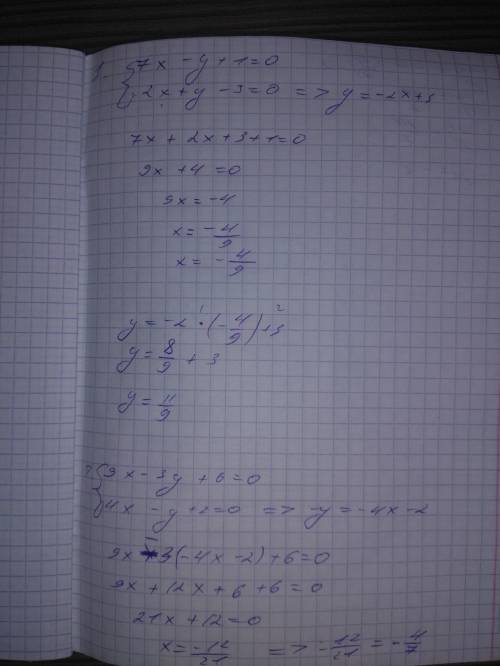 1. 7x - y + 1 = 0
2x + y - 3 = 0 => y = -2x + 3
7x + 2x + 3 + 1 = 0
9x + 4 = 0
9x = -4
x = -4/9
x = -4/9
y = -2 · (-4/9) + 3
y = 8/9 + 3
y = 11/9
9x - 3y + 6 = 0
4x - y + 2 = 0 => -y = -4x - 2
9x + 3(-4x - 2) + 6 = 0
9x + 12x + 6 + 6 = 0
21x + 12 = 0
x = -12/21 => -12/21 = -4/7